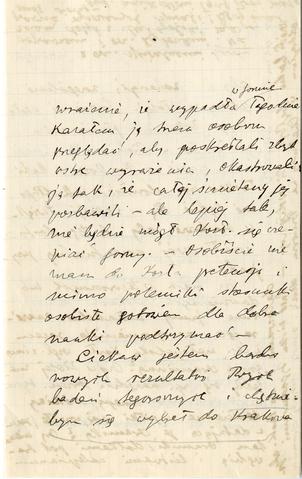 w formie
wrażenie, że wypadła łagodnie
Kazałem ją trzem osobom
przeglądać, aby poskreślali zbyt
ostre wyrażenia, okastrowali
ją tak, że całej śmietany ją
pozbawili – ale lepiej tak,
nie będzie mógł się cze-
piać formy. – Osobiście nie
mam do pretensji i
mimo polemiki stosunki
osobiste gotowem dla dobra
nauki podtrzymać –
Ciekaw jestem bardzo
nowych rezultatów
badań tegorocznych i chętnie
bym się wybrał do Krakowa